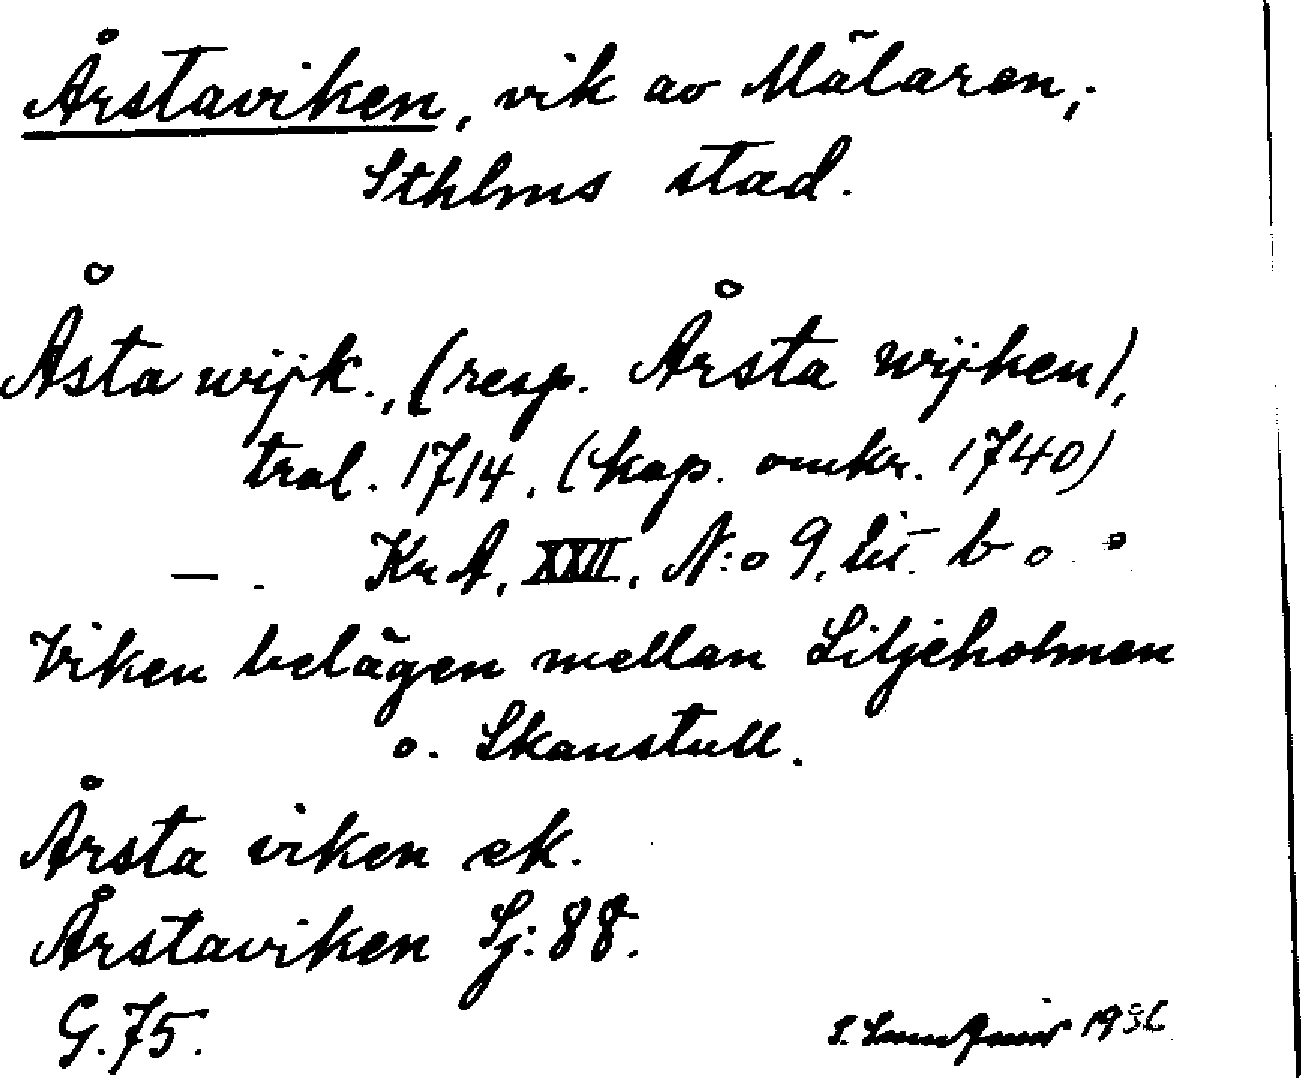 Årstaviken, vik av Mälaren,
Sthlms stad.
Åsta wijk., (resp. Årsta wijken),
tral. 1714. (kop. omkr. 1740)
— . Kr A, XXII, N:o 9, lit. b
Viken belägen mellan Liljeholmen
o. Skanstull.
Årsta viken ek.
Årstaviken Sj: 88.
G. 75.
1936